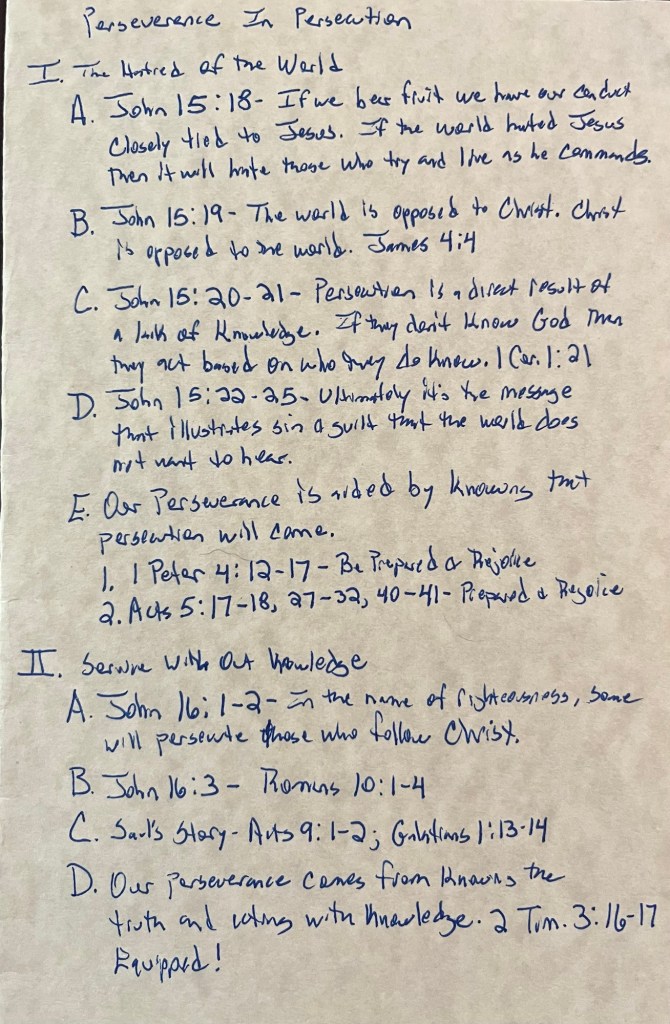 Perseverance In Persecution
I. The Hatred of the World
A. John 15:18- If we bear fruit we have our conduct
closely tied to Jesus. If the world hated Jesus
then it will hate those who try and live as he commands.
B. John 15:19- The world is opposed to Christ. Christ
is opposed to the world. James 4:4
C. John 15:20-21- Persecution is a direct result of
a lack of knowledge. If they don't know God then
they act based on who they do know. 1 Cor. 1:21
D. John 15:22-25- Ultimately it's the message
that illustrates sin & guilt that the world does
not want to hear.
E. Our Perseverance is aided by knowing that
persecution will come.
1. 1 Peter 4:12-17- Be Prepared & Rejoice
2. Acts 5:17-18, 27-32, 40-41- Prepared & Rejoice
II. Service With Out Knowledge
A. John 16:1-2- In the name of righteousness, some
will persecute those who follow Christ.
B. John 16:3- Romans 10:1-4
C. Saul's Story- Acts 9:1-2; Galatians 1:13-14
D. Our perseverance comes from knowing the
truth and acting with knowledge. 2 Tim. 3:16-17
Equipped!